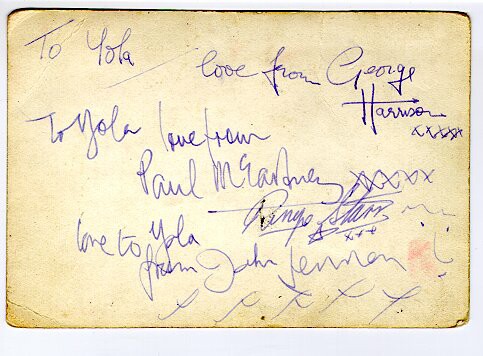 To Yola
love from George
Harrison
xxxxx
To Yola love from
Paul McCartney xxxxx
Ringo Starr
xxx
love to Yola
from John Lennon
x x x x x